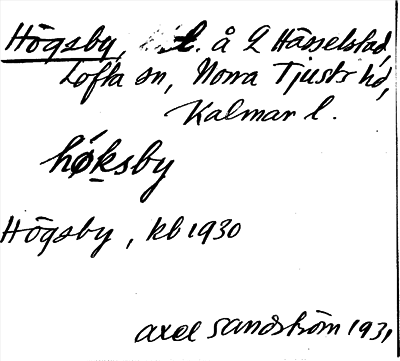 Högsby, t. å 2 Hässelstad,
Lofta sn, Norra Tjusts hd,
Kalmar l.
hǿksby
Högsby, kb 1930
Axel Sandström 1931